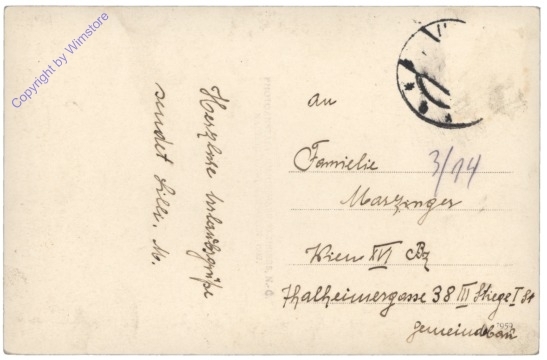 Copyright by Wimstore
Herzliche Urlaubsgrüße
sendet Lilli. M.
an
Familie
3/14
Marzinger
Wien XVI Bz
Thalheimergasse 38 III Stiege I St
Gemeindebau